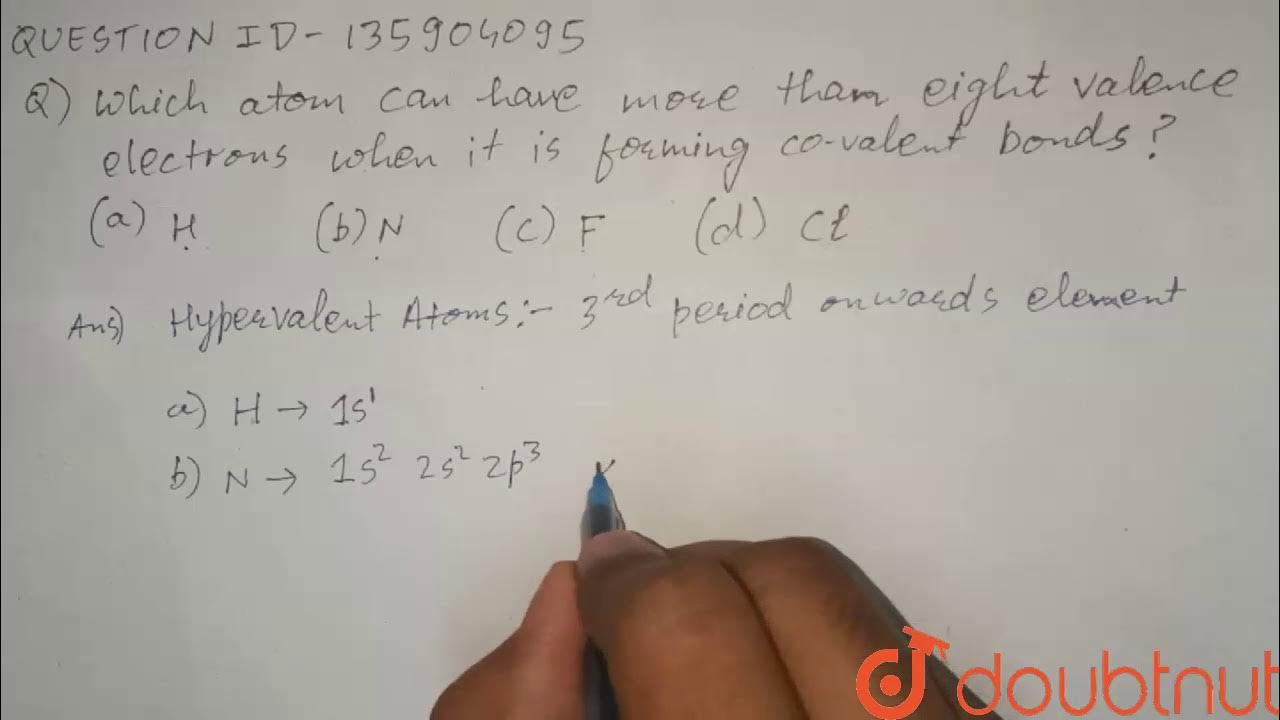 QUESTION ID - 135904095
Q) Which atom can have more than eight valence
electrons when it is forming co-valent bonds?
(a) H (b) N (c) F (d) Cl
Ans) Hypervalent Atoms:- 3rd period onwards element
a) H → 1s¹
b) N → 1s² 2s² 2p³
doubtnut